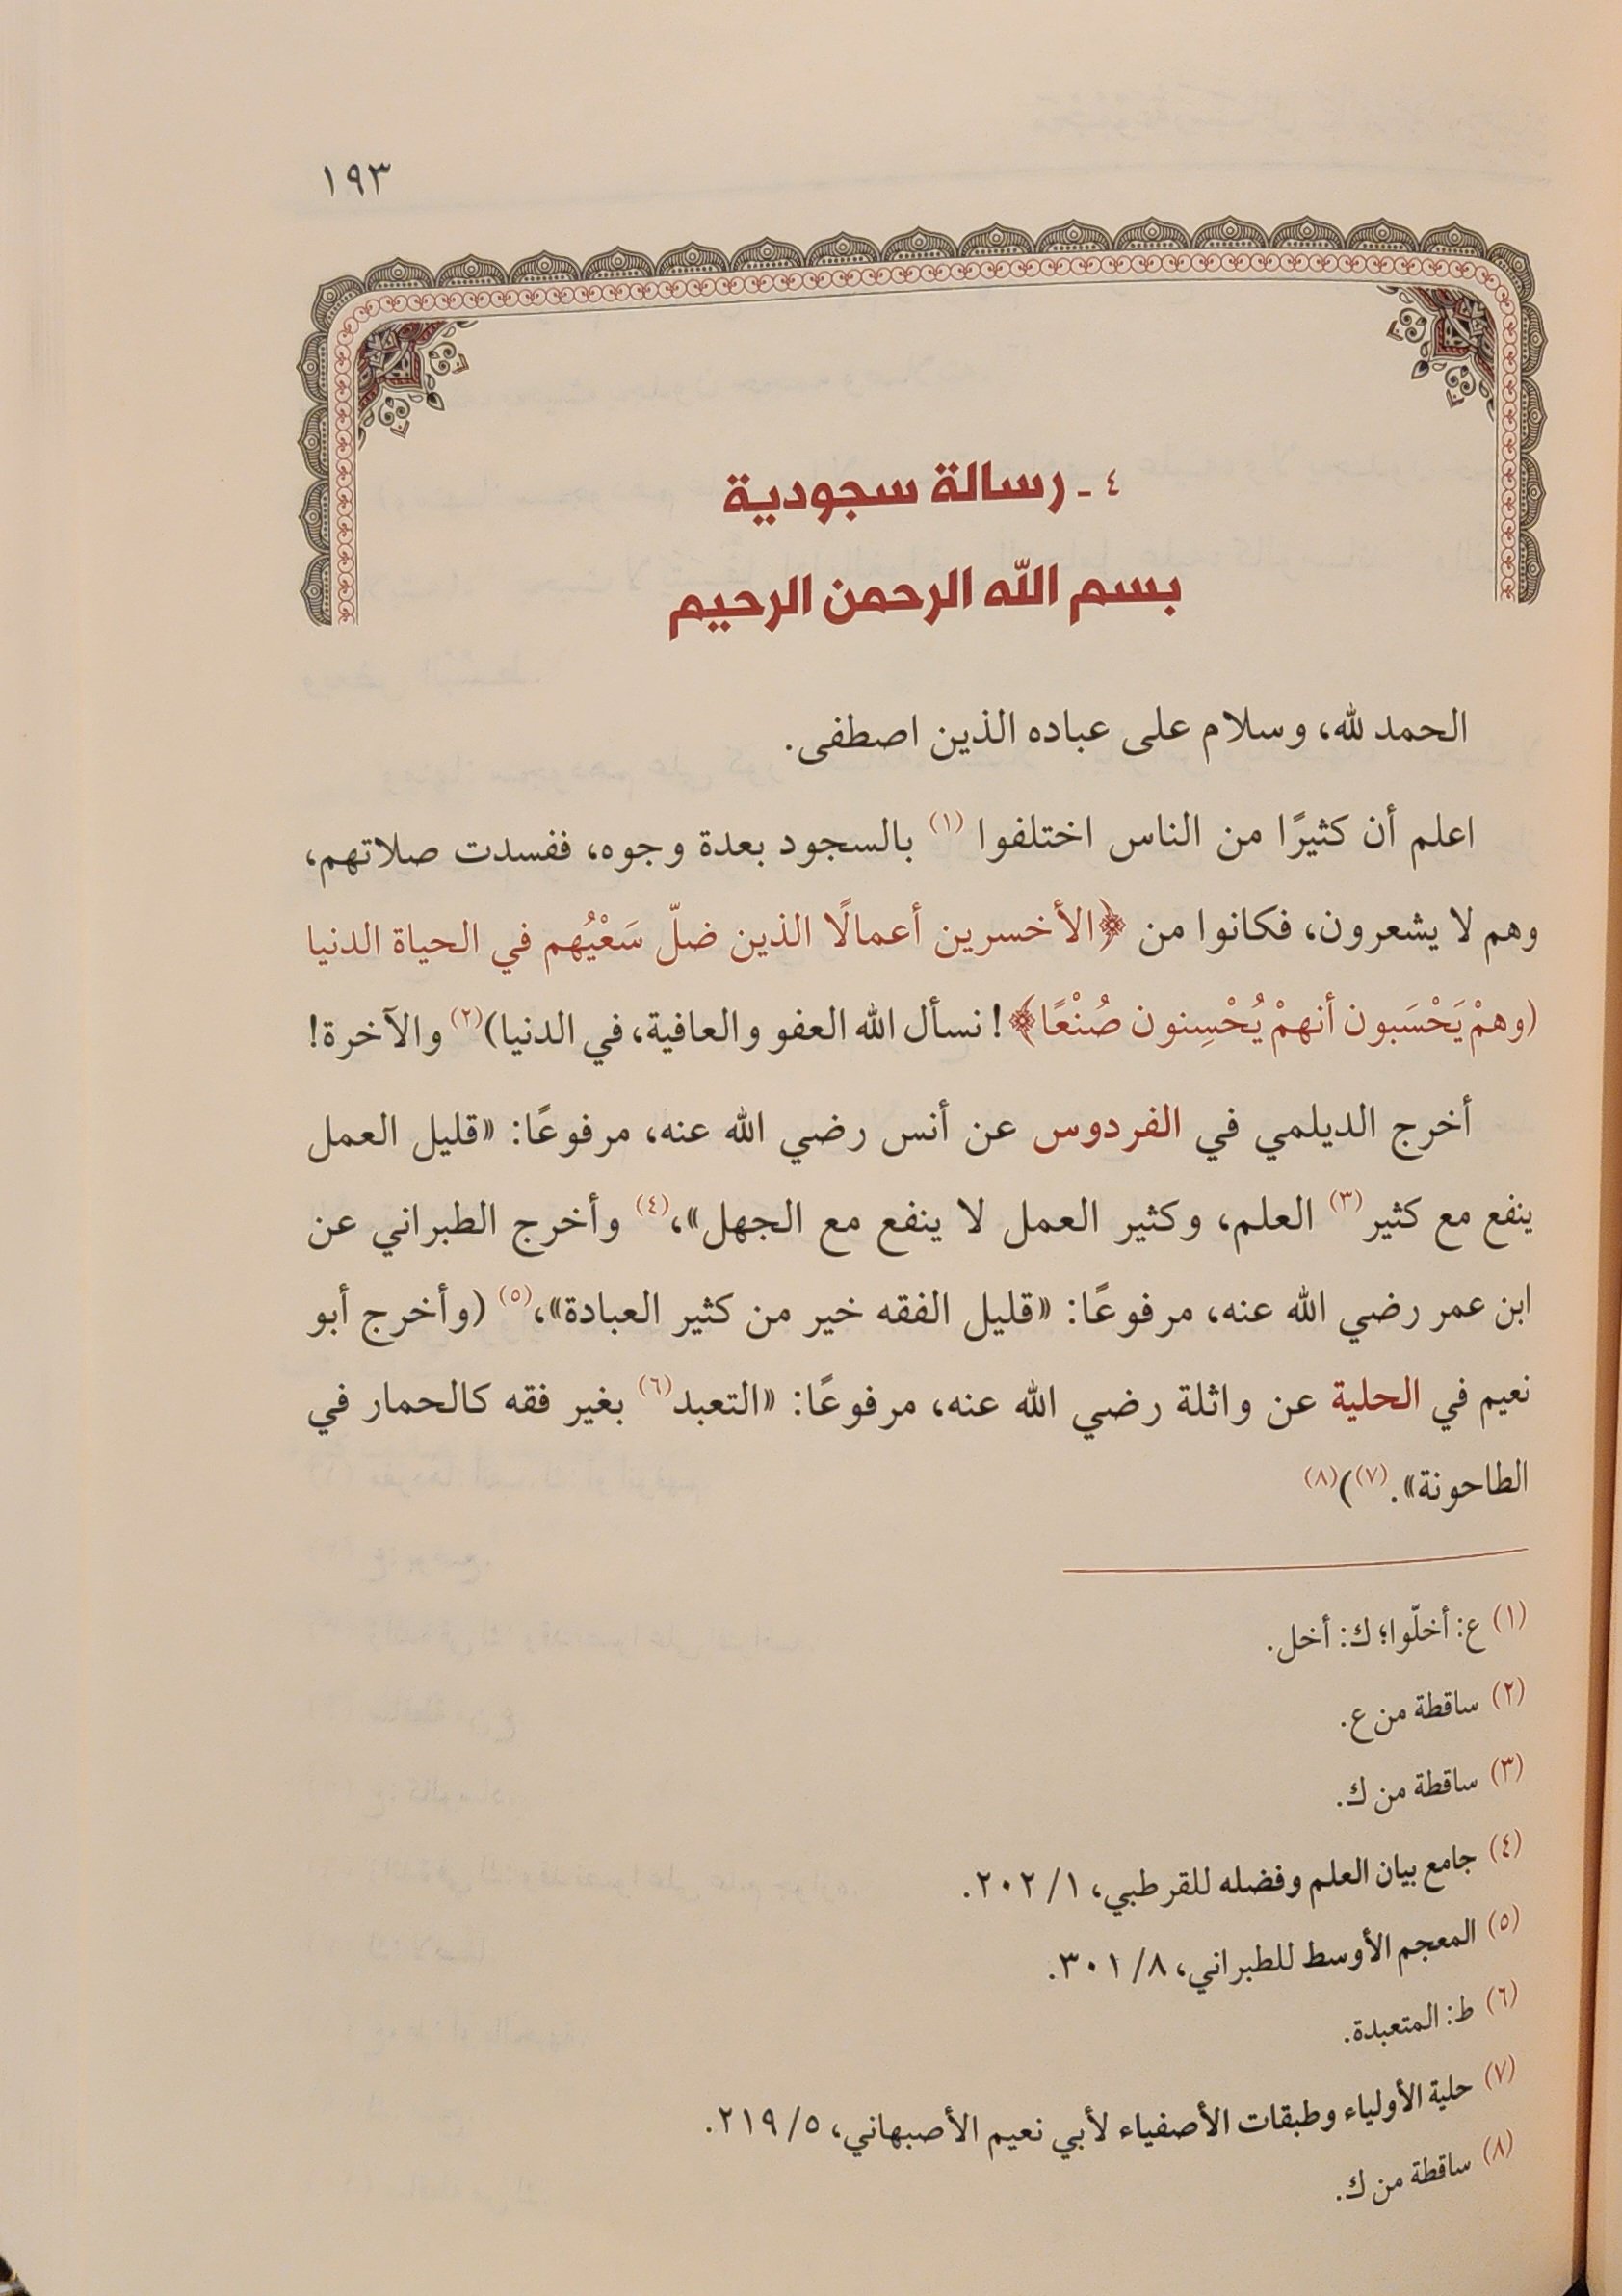 ١٩٣
٤ ـ رسالة سجودية
بسم الله الرحمن الرحيم
الحمد لله، وسلام على عباده الذين اصطفى.
اعلم أن كثيرًا من الناس اختلفوا (١) بالسجود بعدة وجوه، ففسدت صلاتهم،
وهم لا يشعرون، فكانوا من ﴿الأخسرين أعمالًا الذين ضلّ سَعْيُهم في الحياة الدنيا
(وهمْ يَحْسَبون أنهمْ يُحْسِنون صُنْعًا﴾! نسأل الله العفو والعافية، في الدنيا)(٢) والآخرة!
أخرج الديلمي في الفردوس عن أنس رضي الله عنه، مرفوعًا: «قليل العمل
ينفع مع كثير(٣) العلم، وكثير العمل لا ينفع مع الجهل»،(٤) وأخرج الطبراني عن
ابن عمر رضي الله عنه، مرفوعًا: «قليل الفقه خير من كثير العبادة»،(٥) (وأخرج أبو
نعيم في الحلية عن واثلة رضي الله عنه، مرفوعًا: «التعبد(٦) بغير فقه كالحمار في
الطاحونة».(٧))(٨)
(١) ع: أخلّوا؛ ك: أخل.
(٢) ساقطة من ع.
(٣) ساقطة من ك.
(٤) جامع بيان العلم وفضله للقرطبي، ١/ ٢٠٢.
(٥) المعجم الأوسط للطبراني، ٨/ ٣٠١.
(٦) ط: المتعبدة.
(٧) حلية الأولياء وطبقات الأصفياء لأبي نعيم الأصبهاني، ٥/ ٢١٩.
(٨) ساقطة من ك.